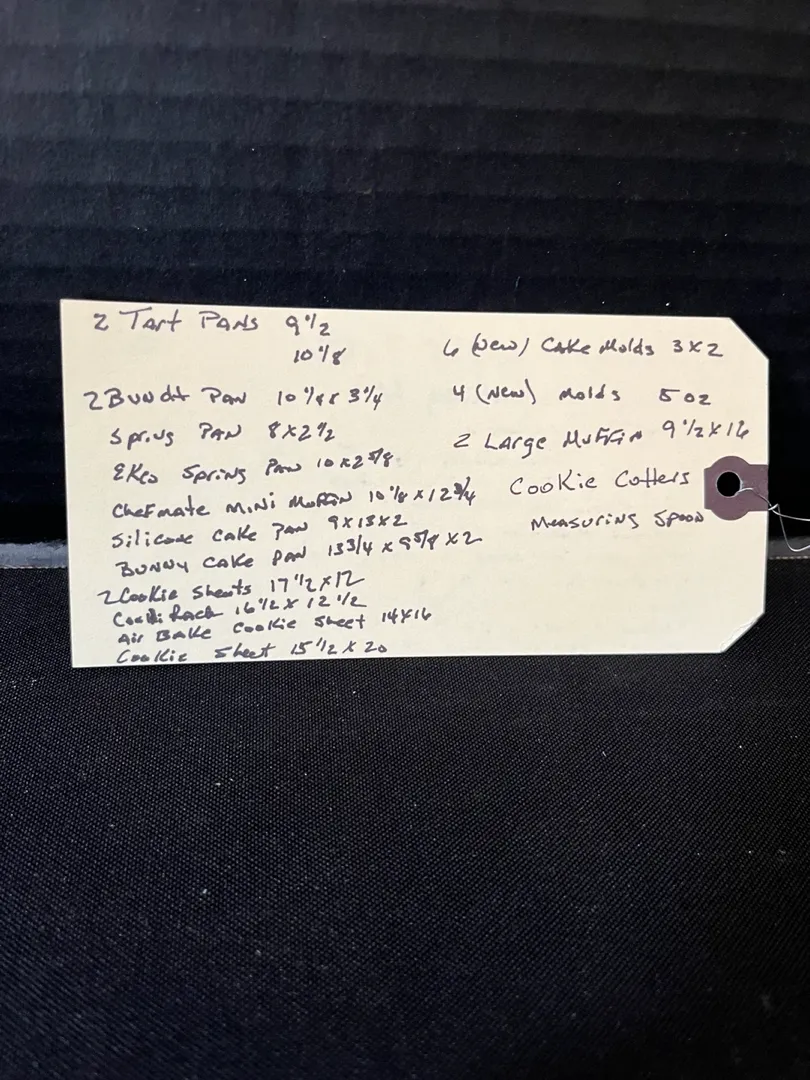 2 Tart Pans 9 1/2
10 1/8
2 Bundt Pan 10 1/8 x 3 1/4
Spring Pan 8x2 1/2
Ekco Spring Pan 10x2 5/8
Chefmate Mini Muffin 10 1/8 x 12 3/4
Silicone Cake Pan 9x13x2
Bunny Cake Pan 13 3/4 x 9 5/8 x 2
2 Cookie Sheets 17 1/2 x 12
Rack 16 1/2 x 12 1/2
Air Bake Cookie Sheet 14x16
Cookie Sheet 15 1/2 x 20
6 (New) Cake Molds 3x2
4 (New) Molds 5 oz
2 Large Muffin 9 1/2 x 16
Cookie Cutters
Measuring Spoon